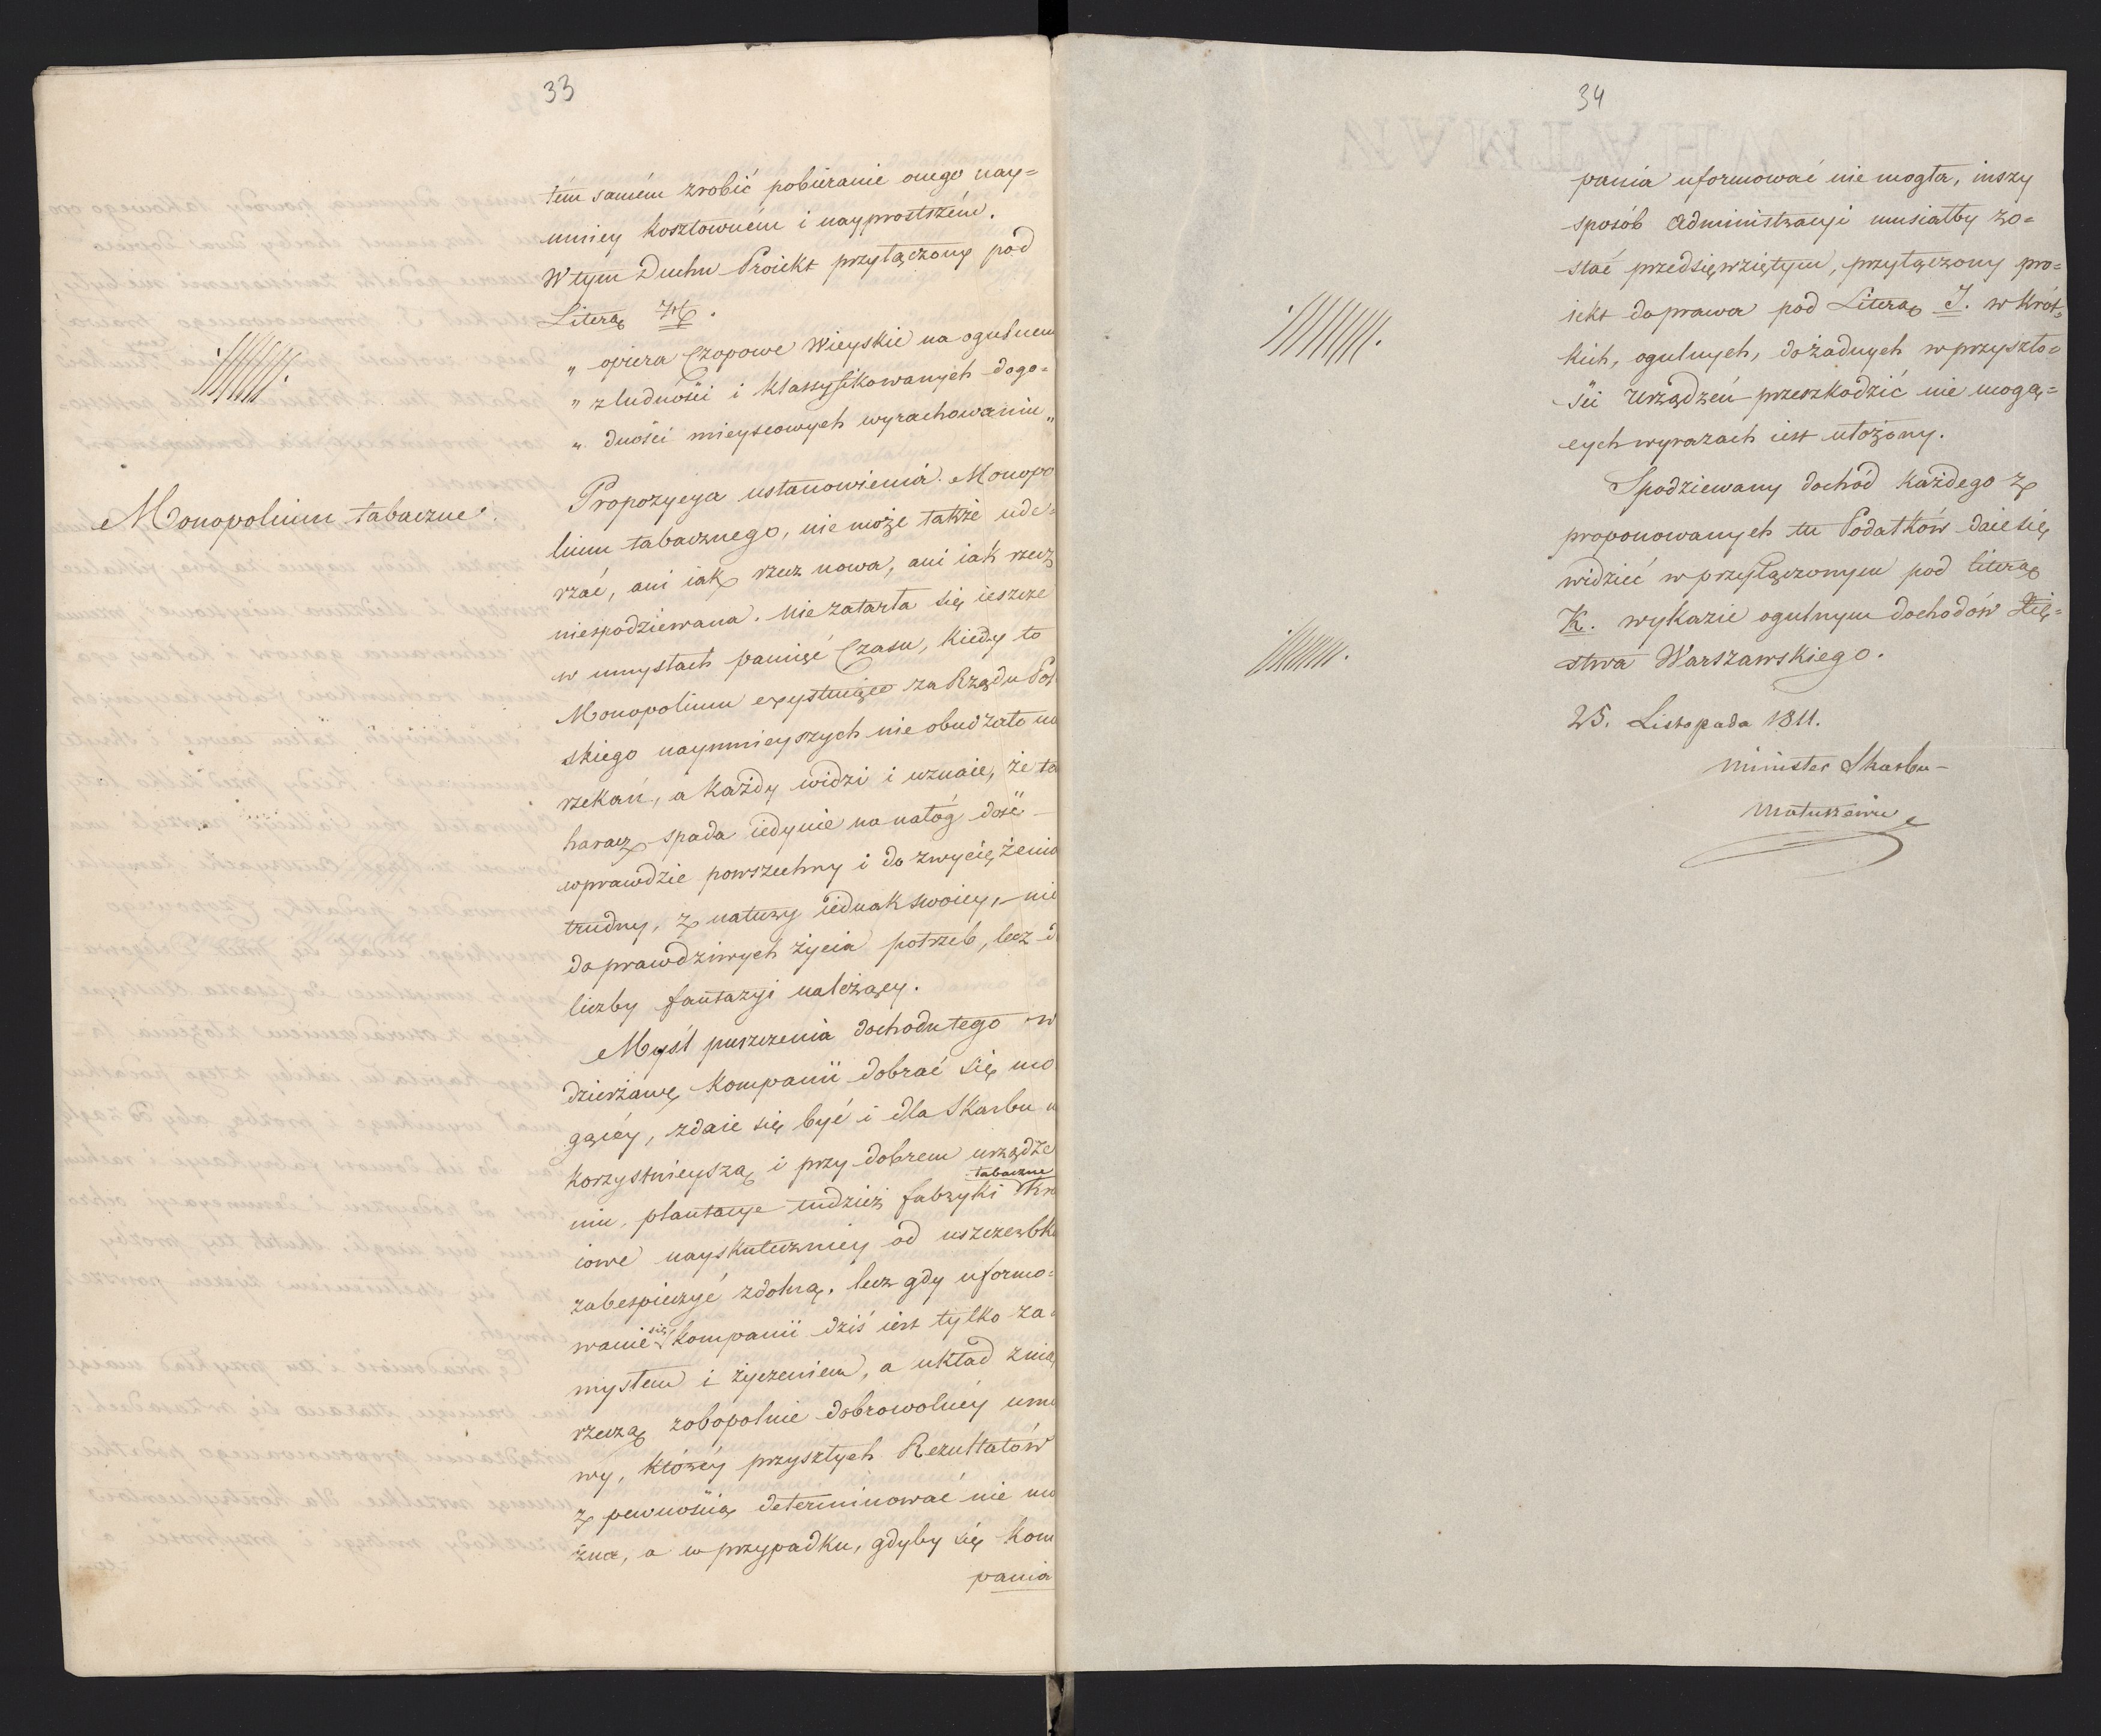 33
tém samém zrobić pobieranie onego nay=
mniey kosztowném i nayprostszém.
W tym Duchu Proiekt przyłączony pod
Literą H.
„ opiera Czopowe Wieyskie na ogulnem
„ z ludności i klassyfikowanych dogo=
„ dności mieyscowych wyrachowaniu „
Monopolium tabaczne.
Propozycya ustanowienia Monopo
lium tabacznego, nie może także ude=
rzać, ani iak rzecz nowa, ani iak rzecz
niespodziewana. Nie zatarła się ieszcze
w umysłach pamięć Czasu, kiedy to
Monopolium exystuiące za Rządu Pol
skiego naymnieyszych nie obudzało na
rzekań, a każdy widzi i uznaie, że ta
haracz spada iedynie na nałóg dość
wprawdzie powszechny i do zwyciężenia
trudny, z natury iednak swoiey, nie
do prawdziwych życia potrzeb, lecz d
liczby fantazyi należący.
Myśl puszczenia dochodu tego w
dzierżawę Kompanii dobrać się mo
gącéy, zdaie się być i dla Skarbu n
korzystnieyszą i przy dobrem urządze
niu, plantacye tudzież fabryki tabaczne Kra
iowe nayskuteczniey od uszczerbku
zabespieczyć zdolną. lecz gdy uformo=
wanie się kompanii dziś iest tylko za=
mysłem i życzeniem, a układ z nią
rzeczą zobopolnie dobrowolnéy umo
wy, któréy przyszłych Rezultatów
z pewnością determinować nie mo
żna, a w przypadku, gdyby się kom
pania
34
pania uformować nie mogła, inszy
sposób Administracyi musiałby zo=
stać przedsięwziętym, przyłączony pro=
iekt do prawa pod Literą I. w krót=
kich, ogulnych, do żadnych w przyszło=
ści Urządzeń przeszkodzić nie mogą=
cych wyrazach iest ułożony.
Spodziewany dochód każdego z
proponowanych tu Podatków daie się
widzieć w przyłączonym pod literą
K. wykazie ogulnym dochodów Xię=
stwa Warszawskiego.
25. Listopada 1811.
Minister Skarbu
Matuszewic